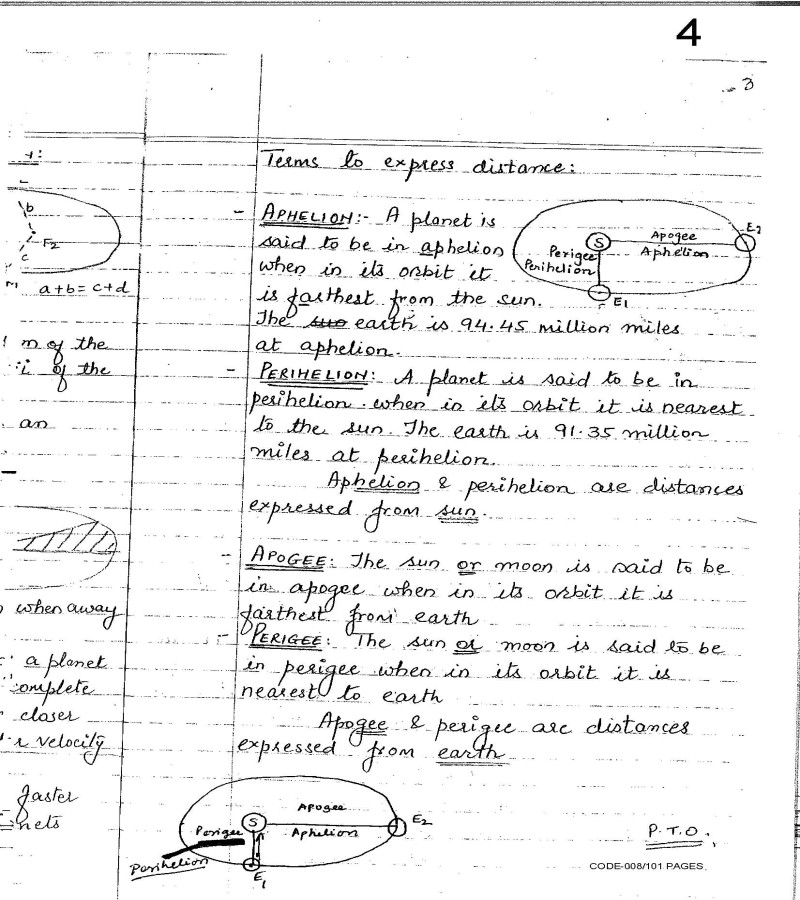 4
3
Terms to express distance:
b
F2
c
a+b = c+d
m of the
of the
an
when away
a planet
complete
closer
velocity
faster
- APHELION:- A planet is
said to be in aphelion
when in its orbit it
is farthest from the sun.
The earth is 94.45 million miles
at aphelion.
S
Apogee
Aphelion
E2
Perigee
Perihelion
E1
- PERIHELION: A planet is said to be in
perihelion when in its orbit it is nearest
to the sun. The earth is 91.35 million
miles at perihelion.
Aphelion & perihelion are distances
expressed from sun.
- APOGEE: The sun or moon is said to be
in apogee when in its orbit it is
farthest from earth
- PERIGEE: The sun or moon is said to be
in perigee when in its orbit it is
nearest to earth
Apogee & perigee are distances
expressed from earth
S
Apogee
Aphelion
E2
Perigee
Perihelion
E1
P.T.O.
CODE-008/101 PAGES.